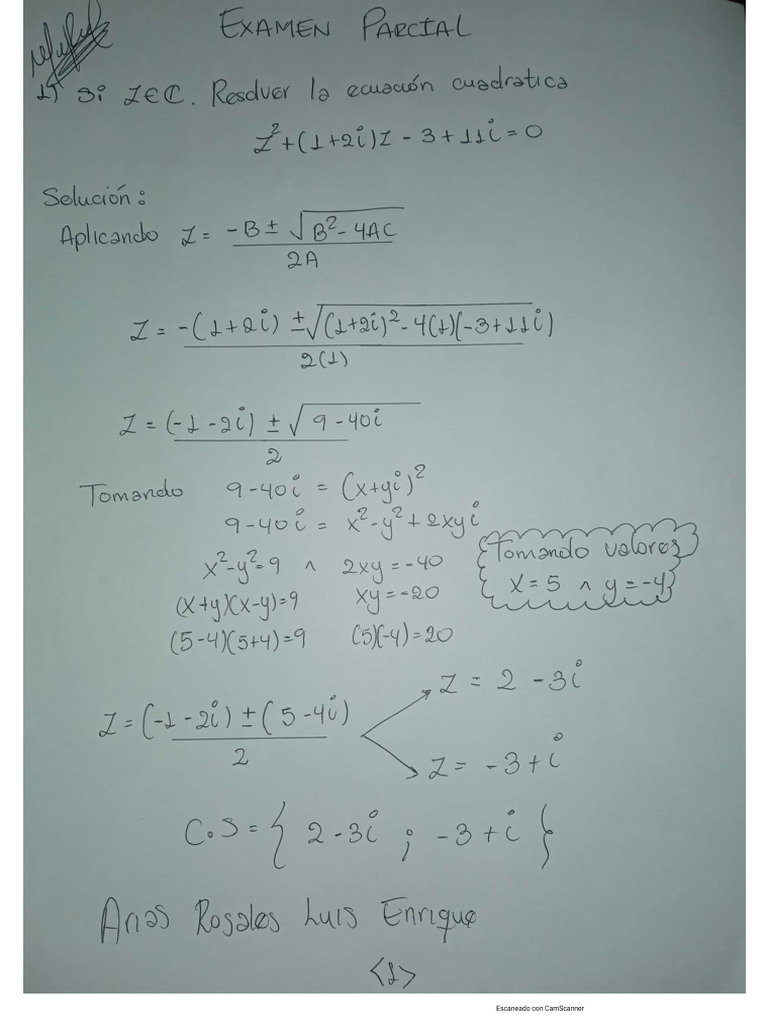 EXAMEN PARCIAL
1) Si Z∈ℂ. Resolver la ecuación cuadratica
Z²+(1+2i)Z-3+11i=0
Solución:
Aplicando Z = (-B±√(B²-4AC))/(2A)
Z = (-(1+2i)±√((1+2i)²-4(1)(-3+11i)))/(2(1))
Z = ((-1-2i)±√(9-40i))/2
Tomando 9-40i = (x+yi)²
9-40i = x²-y²+2xyi
x²-y²=9 ∧ 2xy=-40
(x+y)(x-y)=9 xy=-20
(5-4)(5+4)=9 (5)(-4)=20
Tomando valores
x=5 ∧ y=-4
Z = ((-1-2i)±(5-4i))/2
Z = 2-3i
Z = -3+i
C.S={2-3i ; -3+i}
Arias Rosales Luis Enrique
<1>
Escaneado con CamScanner